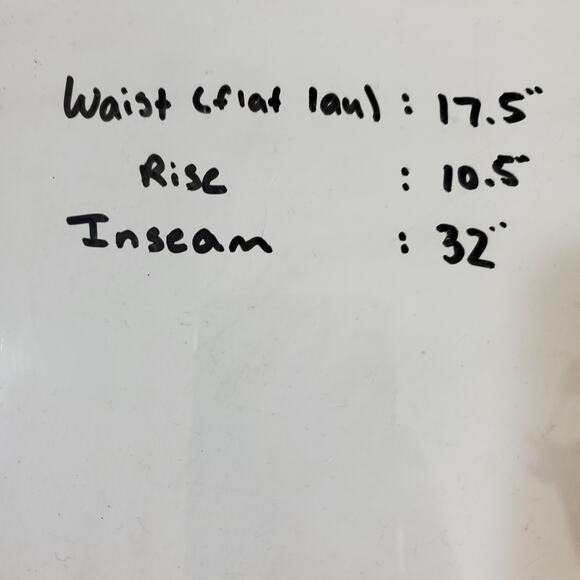 Waist (flat lay) : 17.5"
Rise : 10.5"
Inseam : 32"